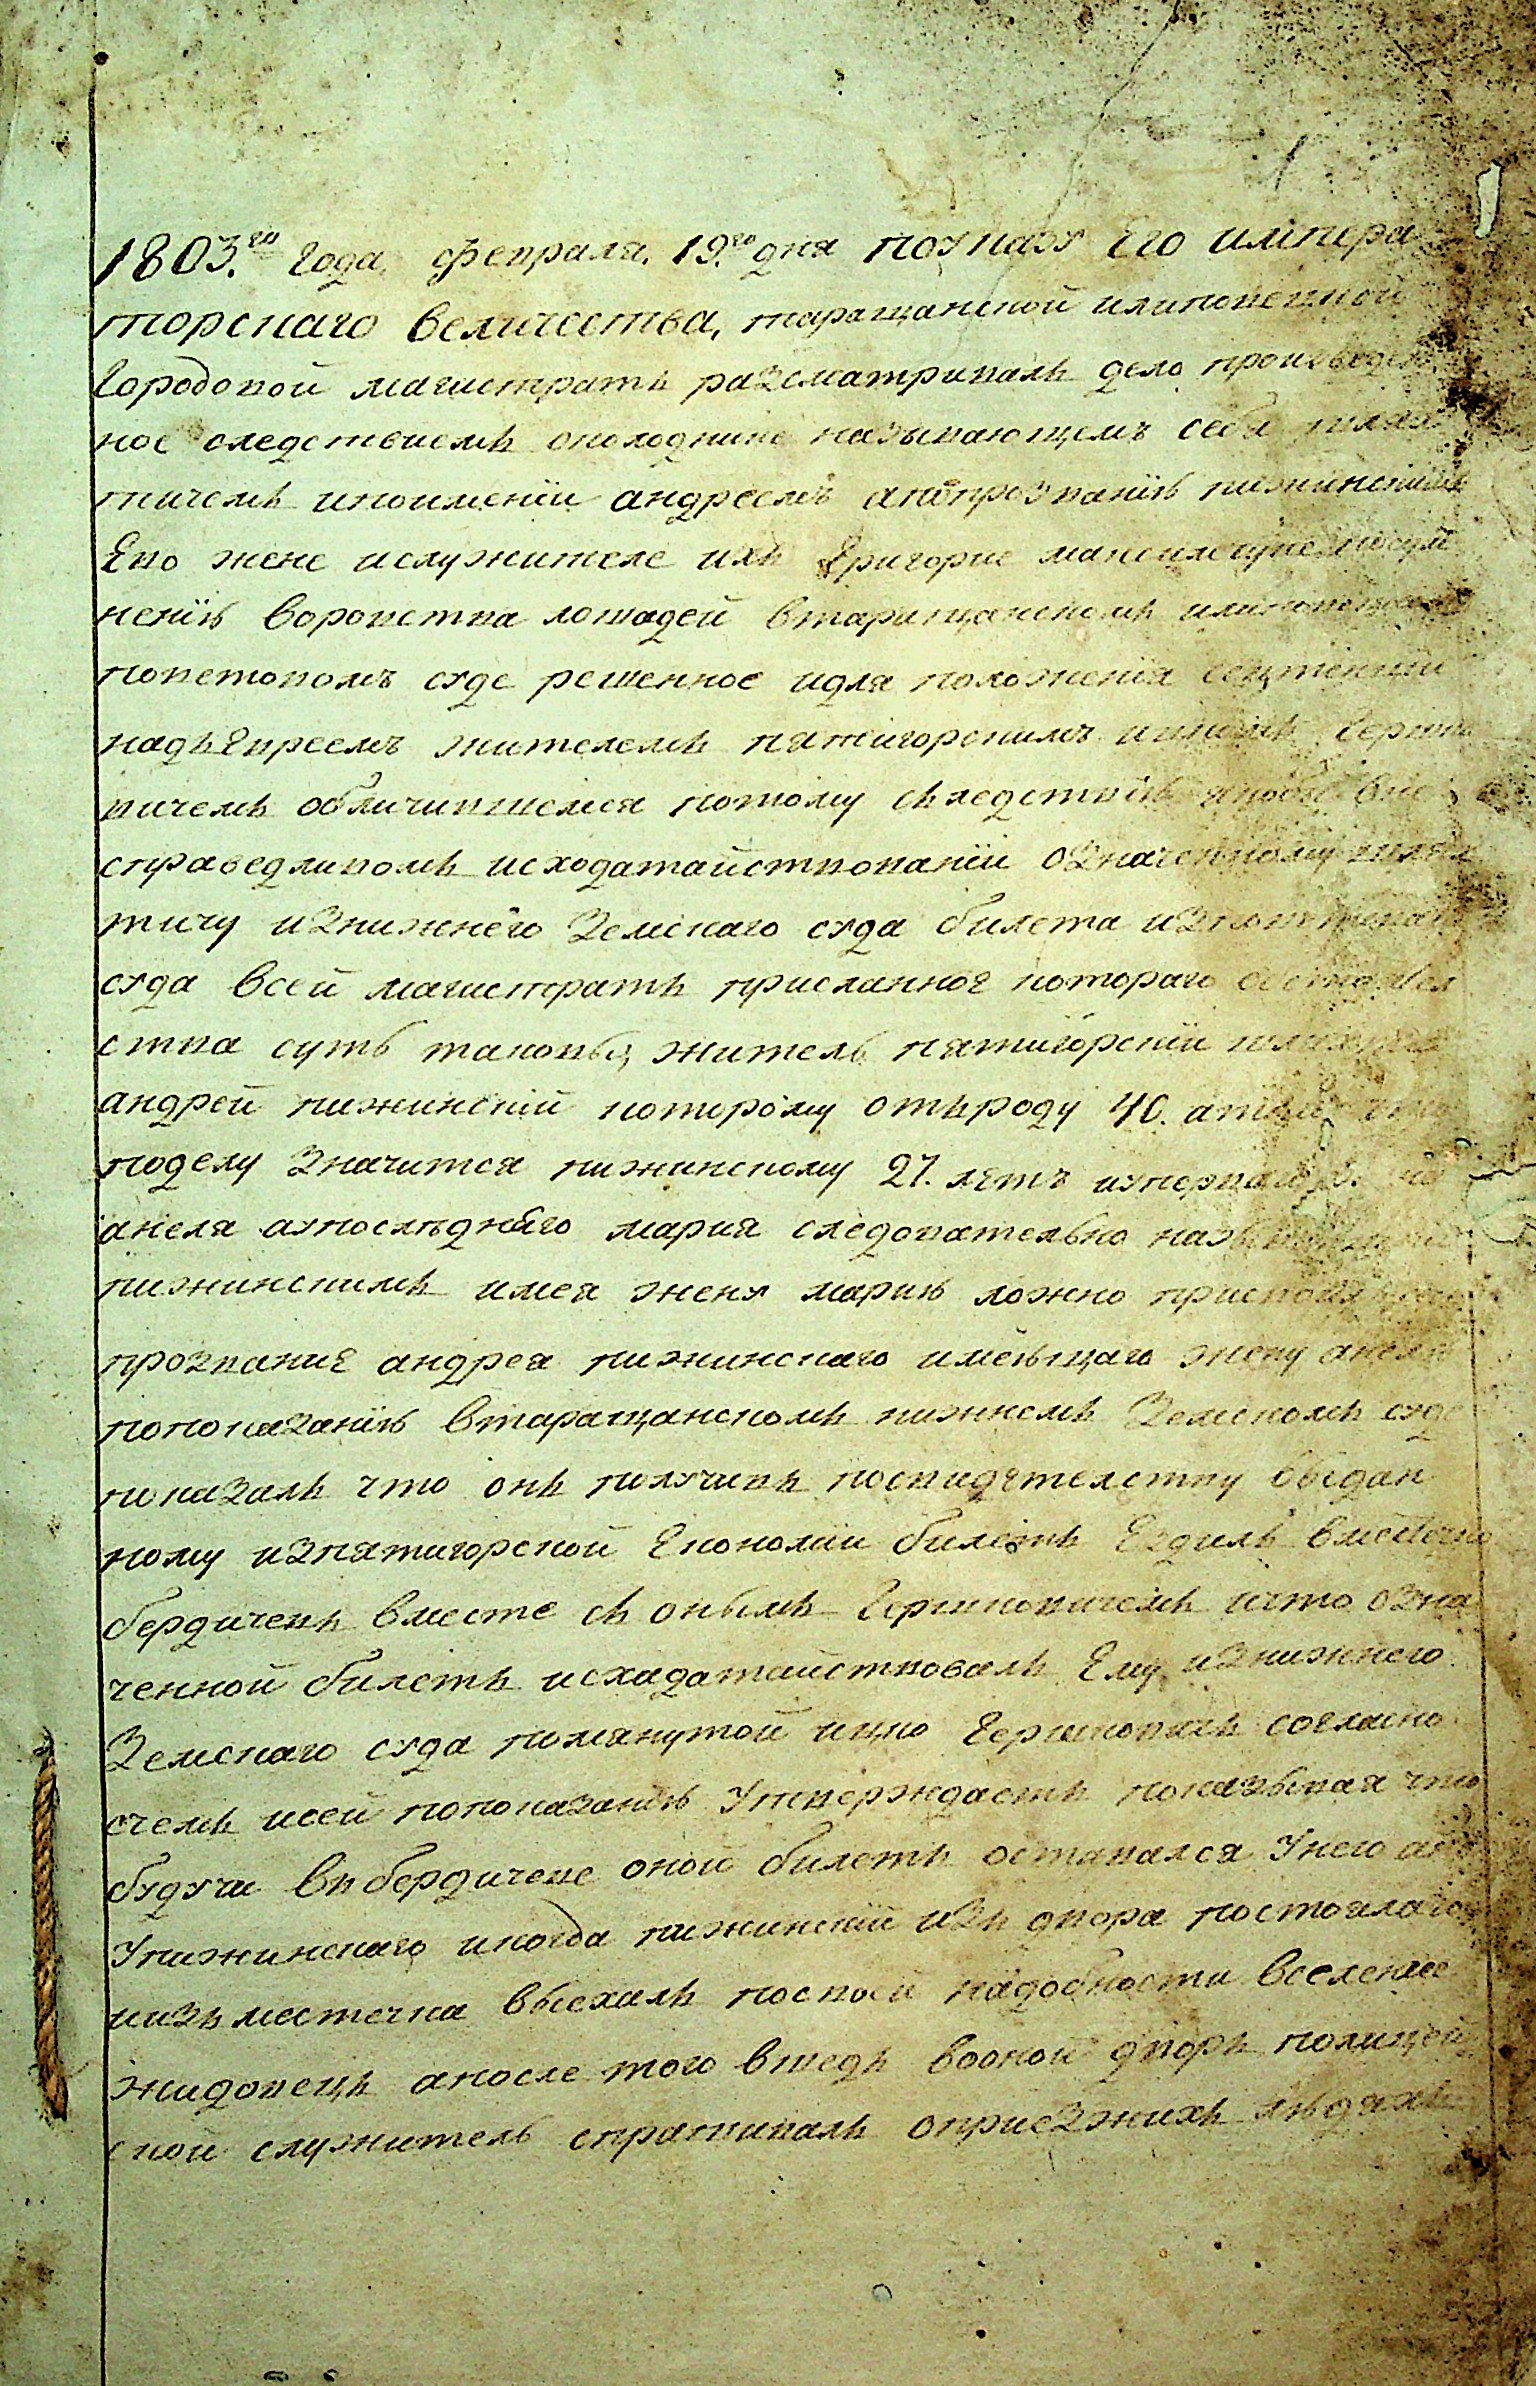 1803.го года, февраля, 19.го дня поуказу Его импера
торскаго величества, таращанской илиповецкой
Городовой магистратъ разсматривалъ дело произведен
ное следствиемъ околоднике называющемъ себя шлях
тичемъ ипоимении андреемъ апопрозванію пижинскимъ
Его жене ислужителе ихъ Григорие
ненію воровства лошадей втаращанскомъ илиповецкомъ
поветовомъ суде решенное идля положения сентенции
надъ Евреемъ жителемъ пятигорскимъ ицкомъ Герш
вичемъ обличившемся потому следствию якобы вне
справедливомъ исходатайствовании означенному шлях
тичу изнижнего Земскаго суда билета изповетоваго
суда всей магистратъ присланное котораго обстоятел
ства суть таковы, житель пятигорский шляхтичъ
андрей пижинский которому отъроду 40.
поделу значится пижинскому 27. летъ
анеля аупоследнего мария следовательно
пижинскимъ имея жену марию ложно
прозвание андрея пижинскаго имеющаго жену анелю
попоказанію втаращанскомъ нижнемъ Земскомъ суде
показалъ что онъ получивъ посвидетелству выдан
ному изпятигорской Економии билетъ Ездилъ вместечко
бердичевъ вместе съ онымъ Гершковичемъ ичто озна
ченной билетъ исхадатайствовалъ Ему изнижнего
Земскаго суда помянутой ицко Гершковичъ согласно
счемъ исей попоказанію Утверждаетъ показывая что
будучи въ бердичеве оной билетъ оставался Унего ане
Упижинскаго икогда пижинский изъ двора постоялаго
иизъ местечка выехалъ посвоей надобности вселение
жидовецъ апосле того вшедъ воной дворъ полицей
ской служитель спрашивалъ оприезжихъ людяхъ